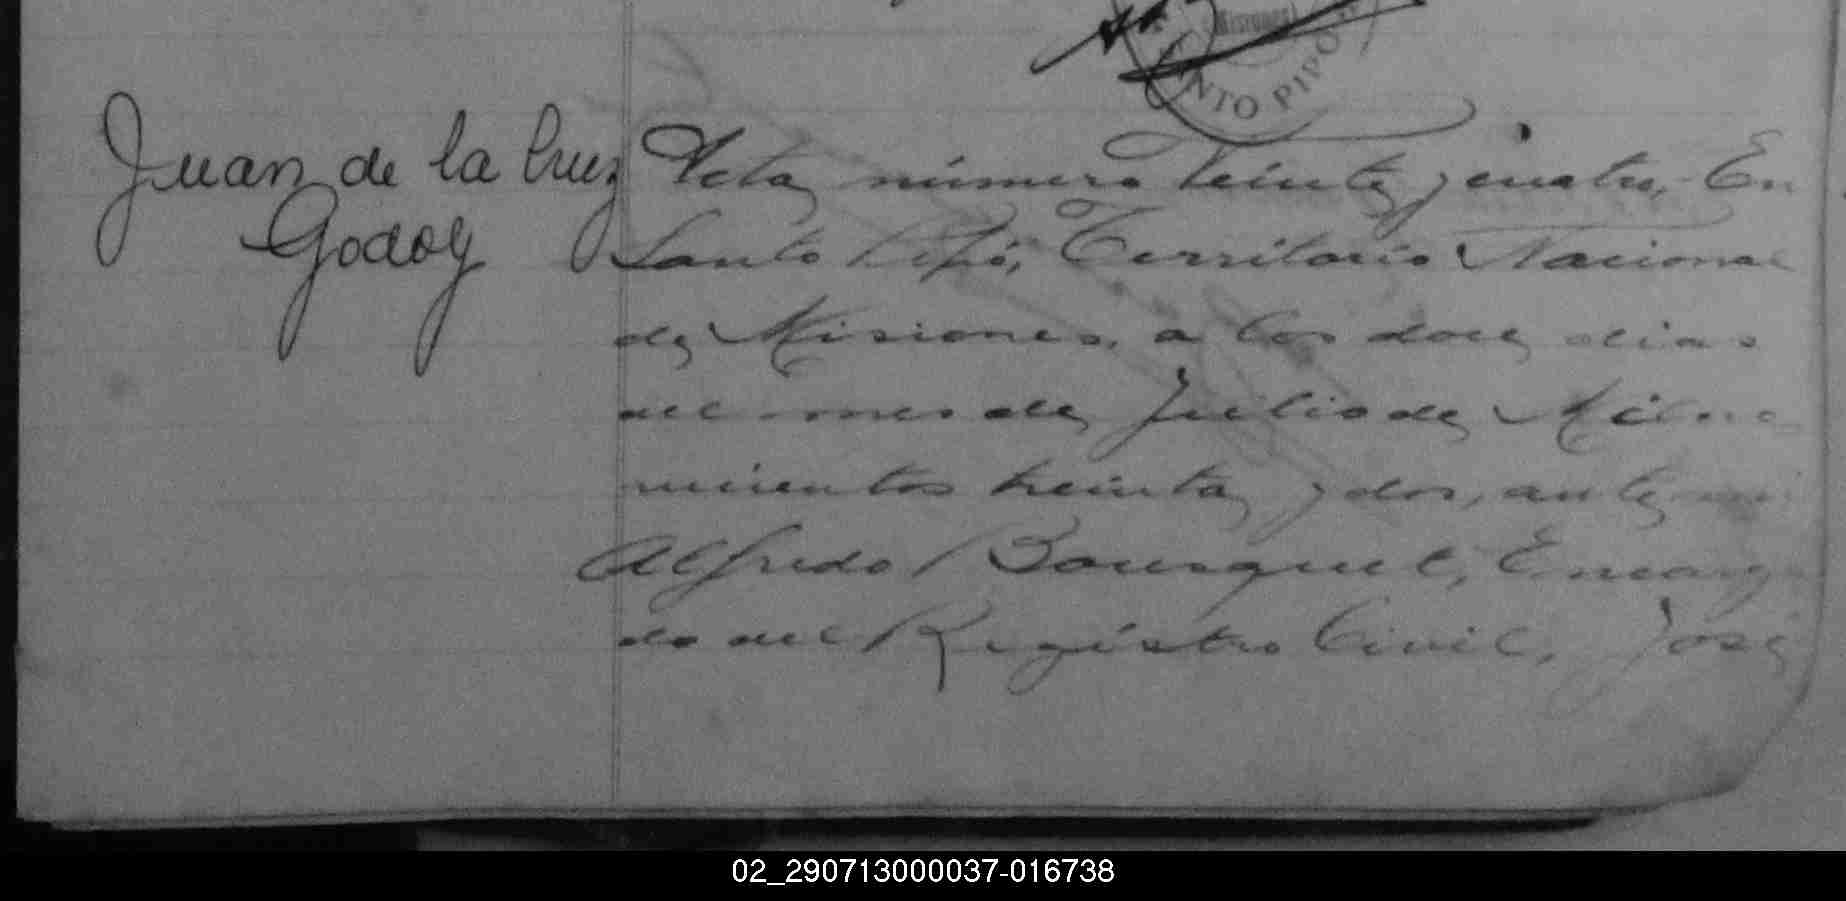 Misiones
SANTO PIPÓ
Juan de la Cruz
Godoy
Acta número Veinte y cuatro, En
Santo Pipó, Territorio Nacional
de Misiones, a los doce dias
del mes de Julio de Mil no-
vecientos treinta y dos, ante mi
Alfredo Bousquet, Encarga
do del Registro Civil, José
02_290713000037-016738